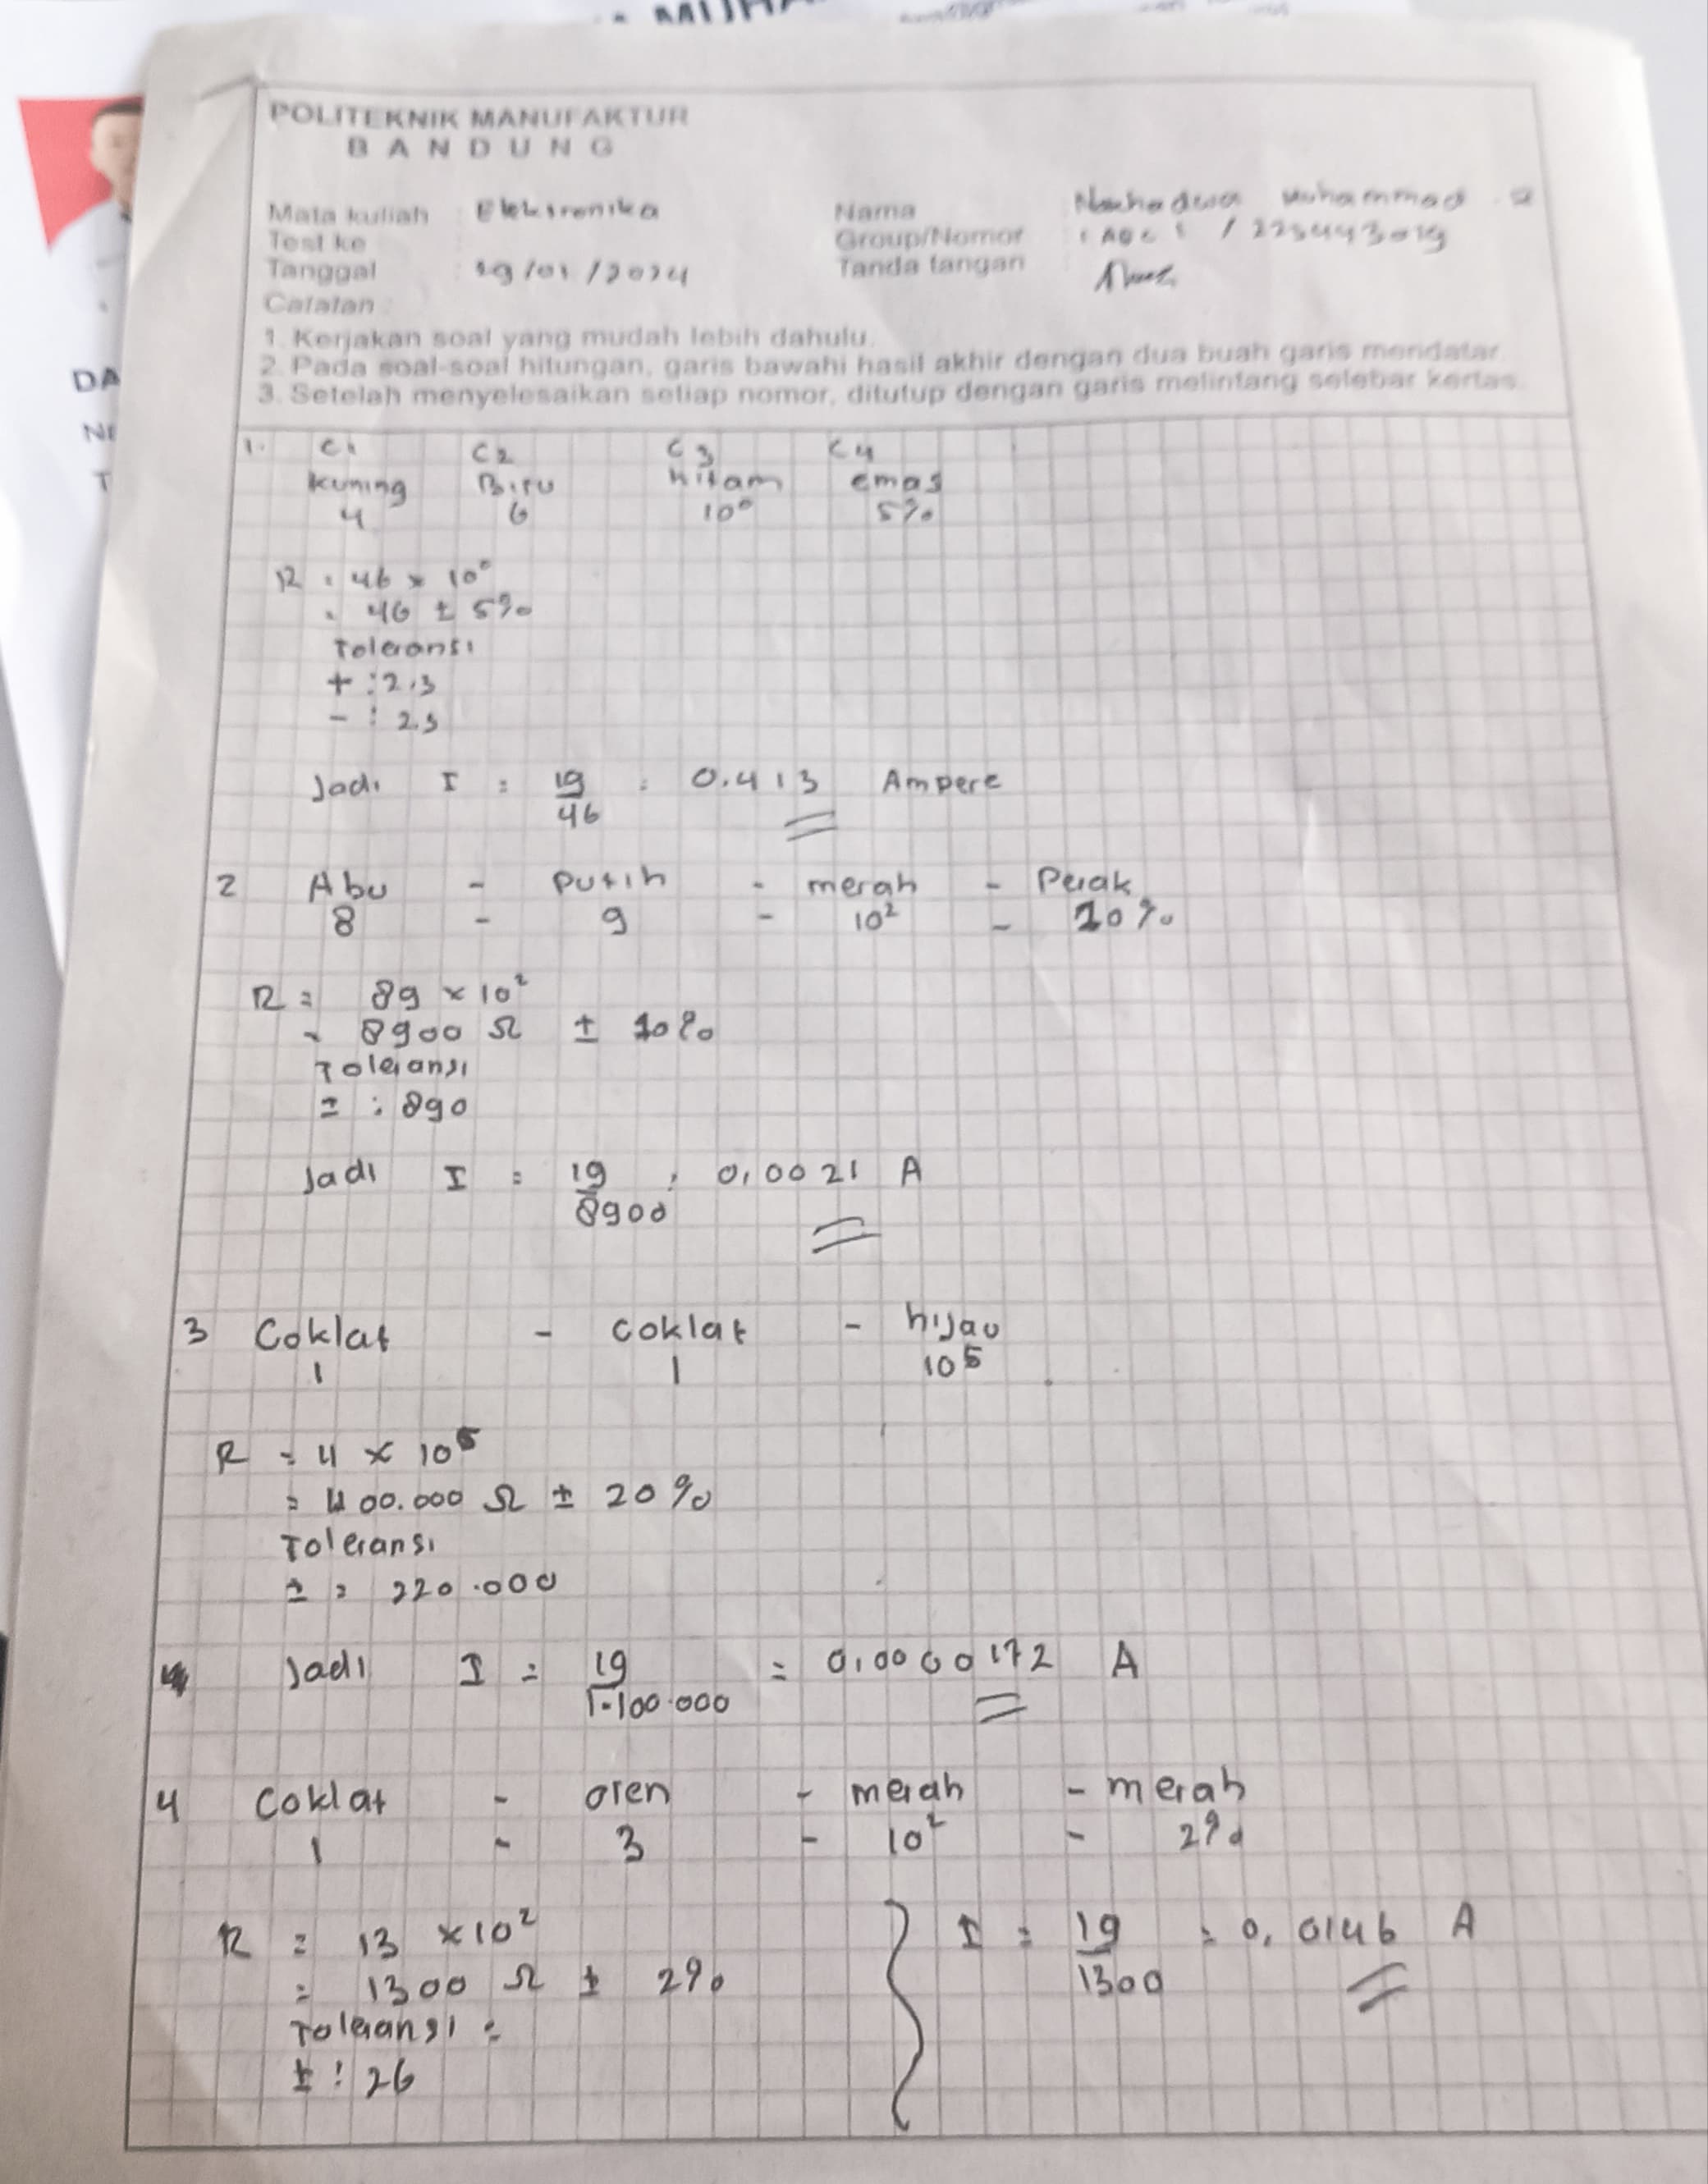 POLITEKNIK MANUFAKTUR
BANDUNG
Mata kuliah : Elektronika
Nama
Muhammad
Test ke
Group/Nomor
Tanggal : 19/01/2024
Tanda tangan
Catatan :
1. Kerjakan soal yang mudah lebih dahulu.
2. Pada soal-soal hitungan, garis bawahi hasil akhir dengan dua buah garis mendatar.
3. Setelah menyelesaikan setiap nomor, ditutup dengan garis melintang selebar kertas.
DA
T
1. C1 C2 C3 C4
Kuning Biru hitam emas
4 6 10⁰ 5%
R : 46 x 10⁰
= 46 ± 5%
Toleransi
+ : 2,3
- : 2.3
Jadi I = 19/46 = 0.413 Ampere
2 Abu - Putih - merah - Perak
8 - 9 - 10² - 10%
R = 89 x 10²
= 8900 Ω ± 10%
Toleransi
± : 890
Jadi I = 19/8900 = 0,0021 A
3 Coklat - coklat - hijau
1 1 10⁵
R = 11 x 10⁵
= 1100.000 Ω ± 20%
Toleransi
± = 220.000
Jadi I = 19/1.100.000 = 0,0000172 A
4 Coklat - oren - merah - merah
1 - 3 - 10² - 2%
R = 13 x 10²
= 1300 Ω ± 2%
Toleransi =
± : 26
I = 19/1300 = 0,0146 A